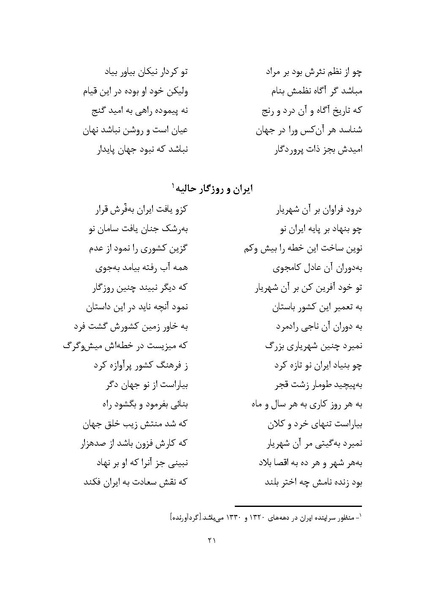 چو از نظم نثرش بود بر مراد تو کردار نیکان بیاور بیاد
مباشد گر آگاه نظمش بنام ولیکن خود او بوده در این قیام
که تاریخ آگاه و آن درد و رنج نه پیموده راهی به امید گنج
شناسد هر آن‌کس ورا در جهان عیان است و روشن نباشد نهان
امیدش بجز ذات پروردگار نباشد که نبود جهان پایدار
ایران و روزگار حالیه۱
درود فراوان بر آن شهریار کزو یافت ایران به‌فرّش قرار
چو بنهاد بر پایه ایران نو به‌رشک جنان یافت سامان نو
نوین ساخت این خطه را بیش وکم گزین کشوری را نمود از عدم
به‌دوران آن عادل کامجوی همه آب رفته بیامد به‌جوی
تو خود آفرین کن بر آن شهریار که دیگر نبیند چنین روزگار
به تعمیر این کشور باستان نمود آنچه ناید در این داستان
به دوران آن ناجی رادمرد به خاور زمین کشورش گشت فرد
نمیرد چنین شهریاری بزرگ که میزیست در خطه‌اش میش‌وگرگ
چو بنیاد ایران نو تازه کرد ز فرهنگ کشور پرآوازه کرد
به‌پیچید طومار زشت قجر بیاراست از نو جهان دگر
به هر روز کاری به هر سال و ماه بنائی بفرمود و بگشود راه
بیاراست تنهای خرد و کلان که شد منتش زیب خلق جهان
نمیرد به‌گیتی مر آن شهریار که کارش فزون باشد از صدهزار
به‌هر شهر و هر ده به اقصا بلاد نبینی جز آنرا که او بر نهاد
بود زنده نامش چه اختر بلند که نقش سعادت به ایران فکند
۱- منظور سراینده ایران در دهه‌های ۱۳۲۰ و ۱۳۳۰ می‌باشد [گردآورنده]
۲۱